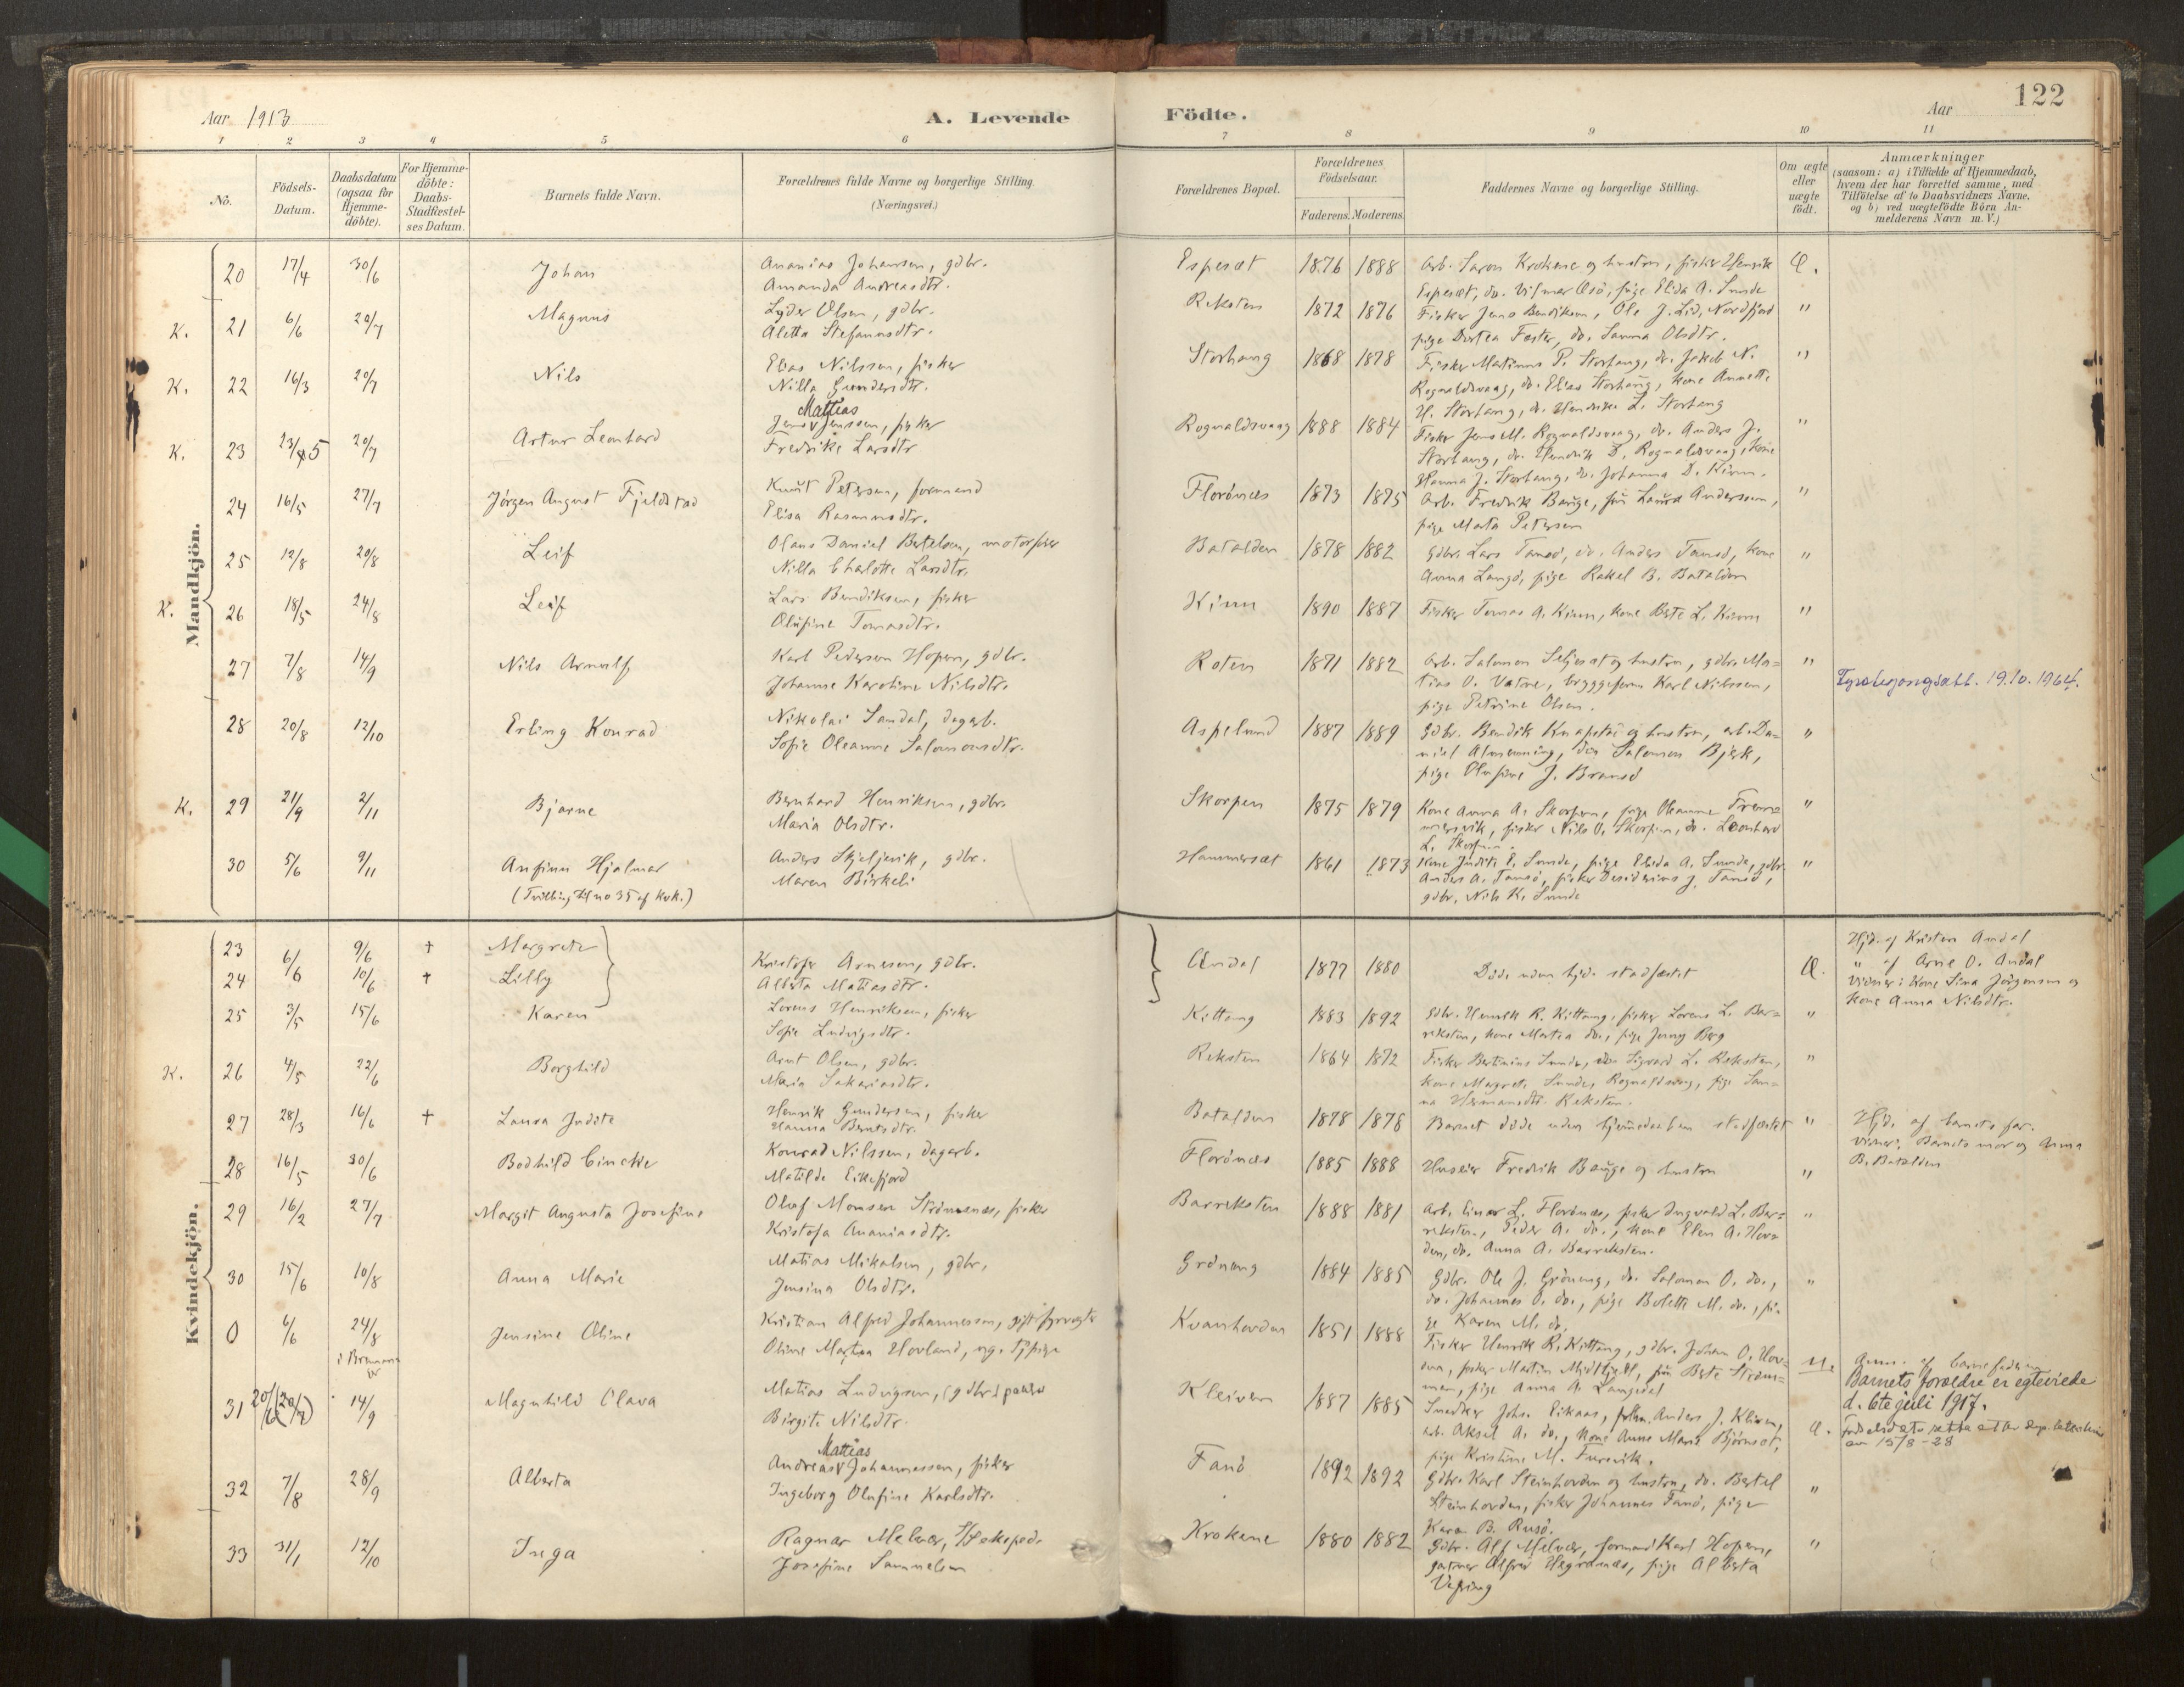 Aar 1913
A. Levende
Födte.
Aar
122
1 2 3 4 5 6 7 8 9 10 11
No.
Födsels-Datum.
Daabsdatum (ogsaa for Hjemme-döbte).
For Hjemme-döbte: Daabs-Stadfæstel-ses Datum.
Barnets fulde Navn.
Forældrenes fulde Navne og borgerlige Stilling. (Næringsvei.)
Forældrenes Bopæl.
Forældrenes Födselsaar.
Faderens. Moderens.
Faddernes Navne og borgerlige Stilling.
Om ægte eller uægte födt.
Anmærkninger
(saasom: a) i Tilfælde af Hjemmedaab,
hvem der har forrettet samme, med
Tilföielse af to Daabsvidners Navne,
og b) ved uægtefödte Börn An-
melderens Navn m. V.)
Mandkjön.
20 17/4 30/6 Johan Ananias Johansen, gdbr. Espeset 1876 1888 Arb. Saron Krokene og hustru, fisker Henrik Æ.
Amanda Andreasdtr. Espeset, do. Vilmar Øsö, pige Elida A. Sunde
K. 21 6/6 20/7 Magnus Lyder Olsen, gdbr. Reksten 1872 1876 Fisker Jens Bendiksen, Ole J. Lid, Nordfjord "
Aletta Stefanusdtr. pige Dortea Foster, do. Sanna Olsdtr.
K. 22 16/3 20/7 Nils Elias Nilssen, fisker Storhaug 1868 1878 Fisker Matinus P. Storhaug, do. Jakob N. "
Nilla Gundersdtr. Rognaldsvaag, do. Elias Storhaug, kone Annette
H. Storhaug, do. Hendrike L. Storhaug
Mattias
K. 23 23/4 5 20/7 Artur Leonhard Jens v Jenssen, fisker Rognaldsvaag 1888 1884 Fisker Jens M. Rognaldsvaag, do. Anders J. "
Fredrike Larsdtr Storhaug, do. Hendrik D. Rognaldsvaag, kone
Hanna J. Storhaug, do. Johanna D. Kinn.
24 16/5 27/7 Jörgen August Fjeldstad Knut Petersen, formand Florönæs 1873 1875 Arb. Fredrik Bauge, fru Laura Anderssen, "
Elisa Rasmusdtr. pige Marta Petersen
25 12/8 20/8 Leif Olaus Daniel Bertelsen, motorfisker Batalden 1878 1882 Gdbr. Lars Tansö, do. Anders Tansö, kone "
Nilla Chalotte Larsdtr. Anna Langö, pige Rakel B. Batalden
K. 26 18/5 24/8 Leif Lars Bendiksen, fisker Kinn 1890 1887 Fisker Tomas A. Kinn, kone Berte L. Kinn "
Olufine Tomasdtr.
27 7/8 14/9 Nils Arnulf Karl Pedersen Hopen, gdbr. Roten 1871 1882 Arb. Salomon Seljeset og hustru, gdbr. Ma= "
Johanne Karoline Nilsdtr. tias O. Vatne, bryggeform Karl Nilssen,
pige Petrine Olsen. 19.10.1964.
28 20/8 12/10 Erling Konrad Nikolai Sandal, dagarb. Aspelund 1887 1889 Gdbr. Bendik Knapstad og hustru, arb. Da= "
Sofie Oleanne Salomonsdtr. niel Almenning, do. Salomon Bjerk,
pige Olufine J. Bransö
K. 29 21/9 2/11 Bjarne Bernhard Henriksen, gdbr. Skorpen 1875 1879 Kone Anna A. Skorpen, pige Oleanne Frem= "
Maria Olsdtr. mersvik, fisker Nils O. Skorpen, do. Leonhard
L. Skorpen.
30 5/6 9/11 Anfinn Hjalmar Anders Skjeljevik, gdbr. Hammerset 1861 1873 Kone Judith E. Sunde, pige Elida A. Sunde, gdbr. "
(Tvilling til no 35 af kvk.) Maren Birkeli Anders A. Tansö, fisker Desiderius J. Tansö,
gdbr. Nils K. Sunde
Kvindekjön.
23 6/6 9/6 † Margrete Kristofer Arnesen, gdbr. Ændal 1877 1880 Döde uden hjd. stadfæstet Æ. Hjd. af Kristen Ændal
24 10/6 † Lilly Alberta Matiasdtr. " af Arne O. Ændal
Vidner: Kone Sina Jörgensen og
kone Anna Nilsdtr.
25 3/5 15/6 Karen Lorens Henriksen, fisker Kittang 1883 1892 Gdbr. Henrik R. Kittang, fisker Lorens L. Bar= "
Sofie Ludvigsdtr. reksten, kone Martea do., pige Jenny Berg
K. 26 4/5 22/6 Borghild Arnt Olsen, gdbr. Reksten 1864 1872 Fisker Bertinius Sunde, do. Sigvard L. Reksten, "
Maria Sakariasdtr. kone Margrete Sunde, Rognaldsvaag, pige San=
na Hermansdtr. Reksten.
27 28/3 16/6 † Laura Judite Henrik Gundersen, fisker Batalden 1878 1878 Barnet döde uden hjemmedaaben stadfæstet " Hjd. af barnets far.
Hanna Berntsdtr. Vidner: Barnets mor og Anna
B. Batalden
28 16/5 30/6 Bodhild Cinckie Konrad Nilssen, dagarb. Florönæs 1885 1888 Huseier Fredrik Bauge og hustru "
Matilde Eikefjord
29 16/2 27/7 Margit Augusta Josefine Olaf Monsen Strömmenæs, fisker Barreksten 1888 1881 Arb. Einar L. Florönæs, fisker Ingvald L. Bar= "
Kristofa Ananiasdtr. reksten, Peder A. do., kone Elen A. Hov=
den, do. Anna A. Barreksten.
30 15/6 10/8 Anna Marie Matias Mikalsen, gdbr. Gröneng 1884 1885 Gdbr. Ole J. Gröneng, do. Salomon O. do., "
Jensine Olsdtr. do. Johannes O. do., pige Bolette M. do., pi=
ge Karen M. do.
0 6/6 24/8 i Bremanger Jensine Oline Kristian Alfred Johannessen, gift Kvanhovden 1851 1888 Fisker Henrik R. Kittang, gdbr. Johan O. Hov= U. Anm. af barnefaderen
Oline Martea Hovland, ug. Tj.pige den, fisker Martin Midtkjell, fru Berte Ström=
men, pige Anna A. Langedal
Barnets foreldre er egteviede
d. 6te juli 1917.
31 20/6 (20/7) 14/9 Magnhild Olava Matias Ludvigsen, (gdbr.) Kleiven 1887 1885 Snedker Johs. Eikaas, Anders J. Kleiven, Æ.
Birgite Nilsdtr. arb. Aksel A. do., kone Anne Marie Björnset,
pige Kristine M. Furevik.
15/8-28
Mattias
32 7/8 28/9 Alberta Andreas v Johannessen, fisker Fanö 1892 1892 Gdbr. Karl Steinhovden og hustru, do. Bertel "
Ingeborg Olufine Karlsdtr. Steinhovden, fisker Johannes Fanö, pige
Kara B. Rusö.
33 31/1 12/10 Inga Ragnar Melvær, Krokene 1880 1882 Gdbr. Alf Melvær, formand Karl Hopen, "
Josefine Samuelsen gartner Alfred Hegrenæs, pige Alberta
Vefring